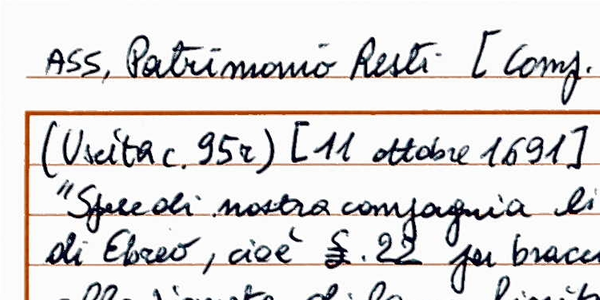 ASS, Patrimonio Resti [Comp.
(Uscita c. 95r) [11 ottobre 1691]
"Spee di nostra compagnia li
di Ebreo, cioè £. 22 per bracc